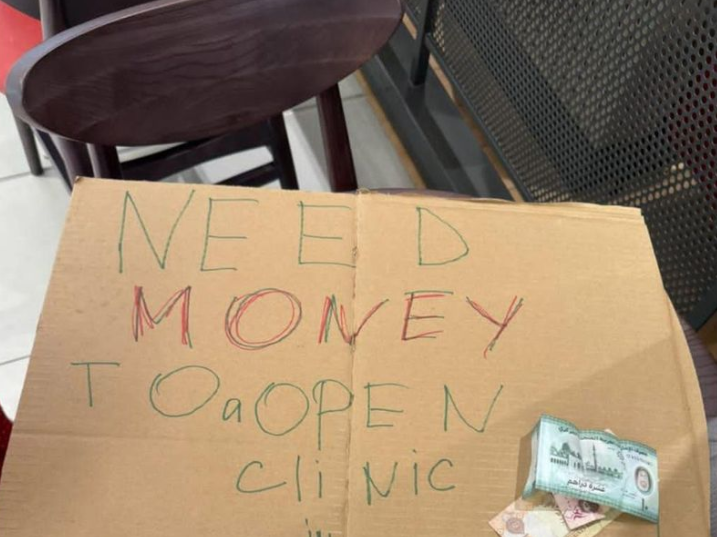 NEED
MONEY
TO a OPEN
Cli NiC
in
عشرة دراهم
١٠